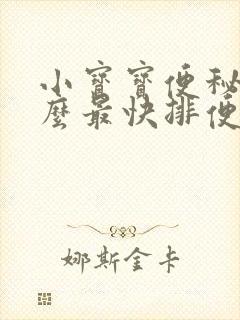 小寶寶便秘
麼最快排便
娜斯金卡